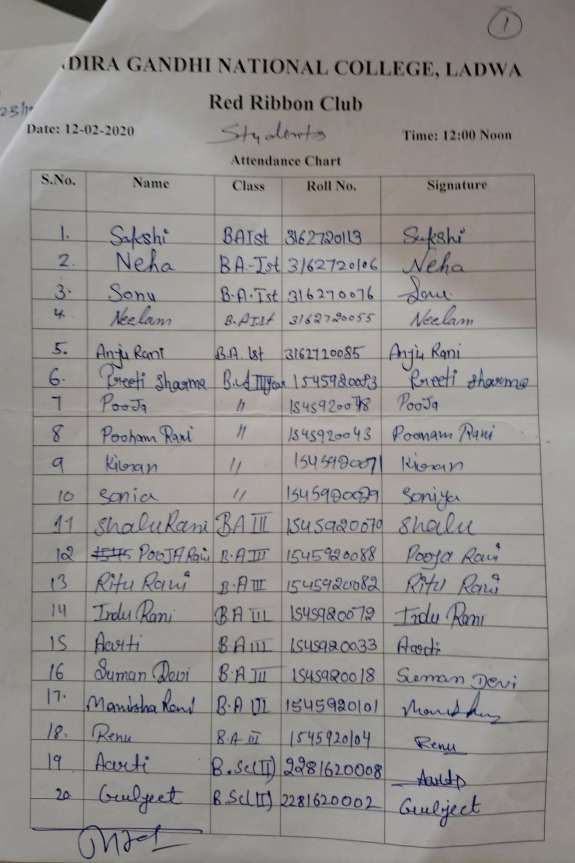 1
DIRA GANDHI NATIONAL COLLEGE, LADWA
Red Ribbon Club
Date: 12-02-2020 Students Time: 12:00 Noon
Attendance Chart
S.No. Name Class Roll No. Signature
1. Sakshi BA Ist 3162720113 Sakshi
2. Neha BA-Ist 3162720106 Neha
3. Sonu B.A.Ist 316270076 Sonu
4. Neelam B.A Ist 3162720055 Neelam
5. Anju Rani B.A. Ist 3162720085 Anju Rani
6. Preeti Sharma B.A III year 1545920093 Preeti Sharma
7 Pooja " 1545920078 Pooja
8 Poonam Rani " 1545920043 Poonam Rani
9 Kiran " 1545920071 Kiran
10 Sonia " 1545920029 Soniya
11 Shalu Rani BA III 1545920070 Shalu
12 POOJA Rani B.A III 1545920088 Pooja Rani
13 Ritu Rani B.A III 1545920082 Ritu Rani
14 Indu Rani BA III 1545920072 Indu Rani
15 Aarti BA III 1545920033 Aarti
16 Suman Devi B.A III 1545920018 Suman Devi
17. Manisha Rani B.A III 1545920101
18. Renu B.A III 1545920104 Renu
19 Aarti B.Sc(II) 2281620008 Aarti
20 Gurljeet B.Sc(II) 2281620002 Gurljeet